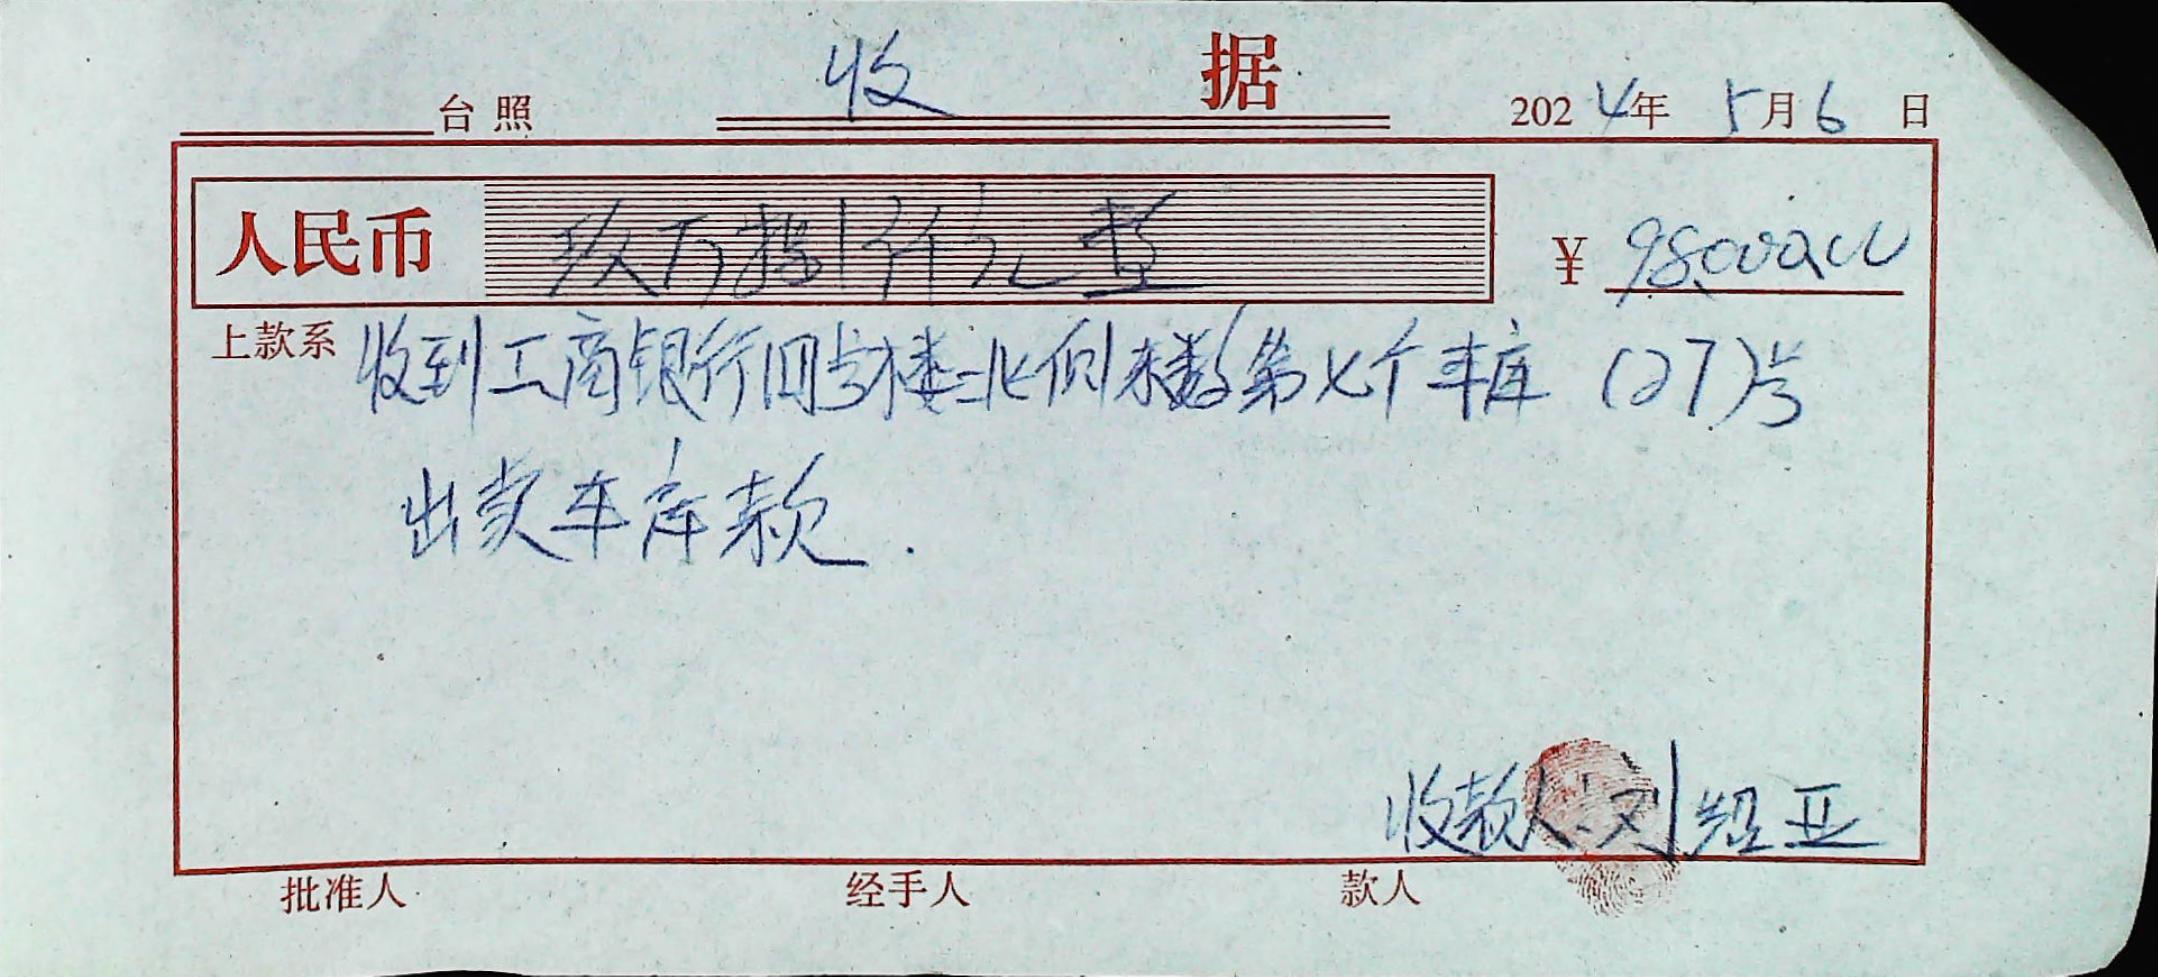 台照 收据 2024年5月6日
人民币 玖万捌仟元整 ¥ 98000.00
上款系 收到工商银行四号楼北侧东数第七个车库(27)号
出卖车库款.
收款人:刘绍亚
批准人 经手人 款人